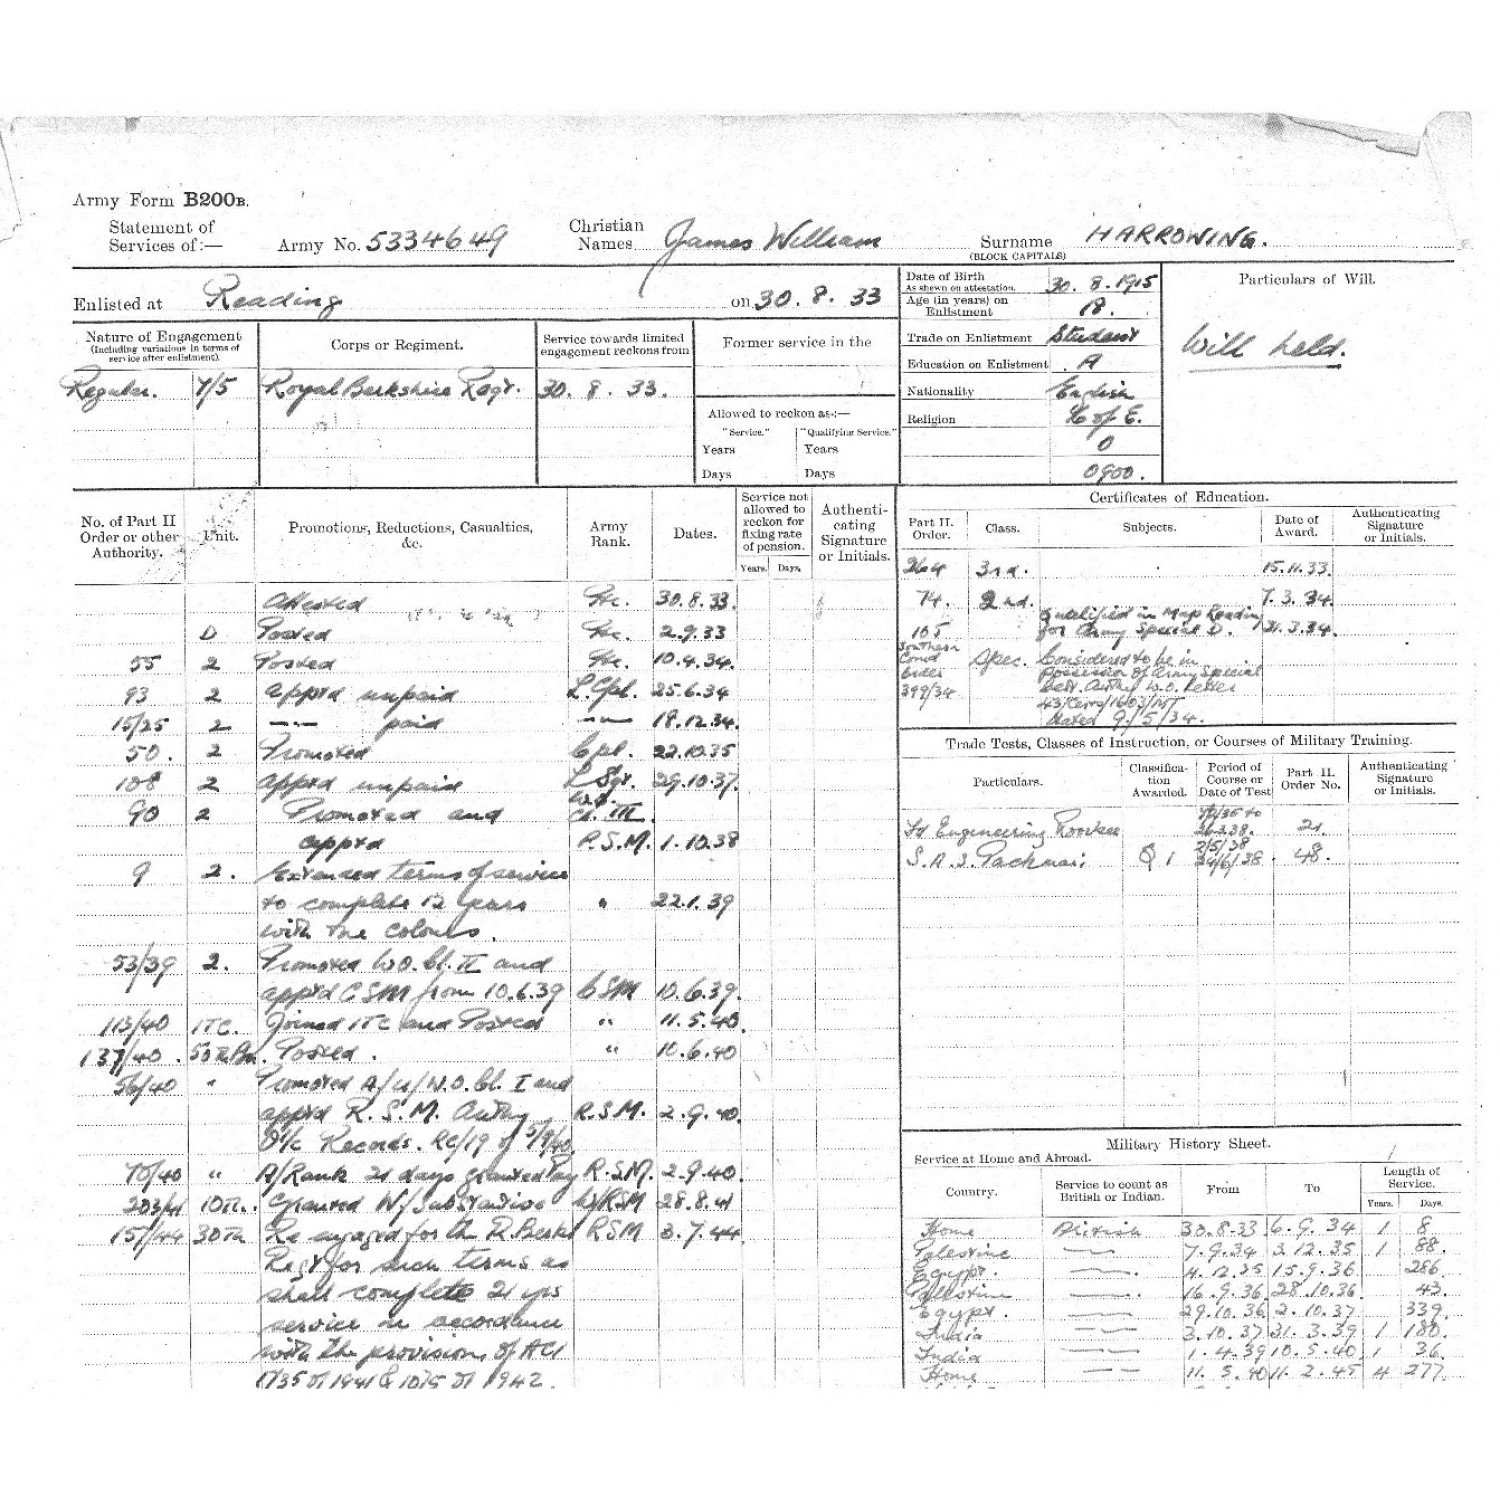 Army Form B200B.
Statement of Services of:—
Army No. 5334649
Christian Names James William
Surname HARROWING.
(BLOCK CAPITALS)
Enlisted at Reading on 30. 8. 33
Date of Birth 30. 8. 1915
As shewn on attestation.
Age (in years) on Enlistment 18.
Trade on Enlistment Student
Education on Enlistment A
Nationality English
Religion C of E.
0
0900.
Particulars of Will.
Will held.
Nature of Engagement
(Including variations in terms of service after enlistment).
Corps or Regiment.
Service towards limited engagement reckons from
Former service in the
Regular. 7/5 Royal Berkshire Regt. 30. 8. 33.
Allowed to reckon as:—
"Service." "Qualifying Service."
Years Years
Days Days
No. of Part II Order or other Authority.
Unit.
Promotions, Reductions, Casualties, &c.
Army Rank.
Dates.
Service not allowed to reckon for fixing rate of pension.
Years. Days.
Authenticating Signature or Initials.
Attested Pte. 30.8.33.
D Posted Pte. 2.9.33
55 2 Posted Pte. 10.4.34.
93 2 Apptd unpaid L.Cpl. 25.6.34
15/25 2 —"— paid —"— 18.12.34.
50. 2 Promoted Cpl. 22.10.35
108 2 Apptd unpaid L Sgt. 29.10.37.
90 2 Promoted and W.O. Cl. III.
apptd P.S.M. 1.10.38
9 2. Extended terms of service
to complete 12 years " 22.1.39
with the colours.
53/39 2. Promoted W.O. Cl. II and
apptd CSM from 10.6.39 CSM 10.6.39.
113/40 ITC. Joined ITC and Posted " 11.5.40.
137/40. 50th Bn. Posted. " 10.6.40
56/40 " Promoted A/U/W.O. Cl. I and
apptd R.S.M. Authy R.S.M. 2.9.40.
O i/c Records. RC/19 of 5/9/40
70/40 " A/Rank 21 days granted Pay R.S.M. 2.9.40.
203/41 10th. Granted W/Substantive W/RSM 28.8.41
157/44 30th Re engaged for the R Berks RSM 3.7.44.
Regt for such terms as
shall complete 21 yrs
service in accordance
with the provisions of ACI
1735 of 1941 & 1075 of 1942.
Certificates of Education.
Part II. Order. Class. Subjects. Date of Award. Authenticating Signature or Initials.
264 3rd. 15.11.33.
74. 2nd. 7.3.34.
105 Qualified in Map Reading
for Army Special D. 21.3.34.
Southern Comd Order 399/34 Spec. Considered to be in
possession of Army Special
Cert. Authy W.O. Letter
dated 9/5/34.
Trade Tests, Classes of Instruction, or Courses of Military Training.
Particulars. Classification Awarded. Period of Course or Date of Test Part II. Order No. Authenticating Signature or Initials.
Fd Engineering Roorkee 26.2.38. 21.
S.A.S. Pachmari Q 1 2/5/38 24/6/38. 48.
Military History Sheet.
Service at Home and Abroad.
Country. Service to count as British or Indian. From To Length of Service.
Years. Days.
Home British 30.8.33 6. 9. 34 1 8
Palestine —"— 7.9.34 3.12.35 1 88.
Egypt. —"— 4.12.35 15.9.36 286
Palestine —"— 16.9.36 28.10.36 43.
Egypt. —"— 29.10.36 2.10.37 339
India —"— 3.10.37 31.3.39 1 180.
India —"— 1.4.39 10.5.40 1 36.
Home —"— 11.5.40 11.2.45 4 277.